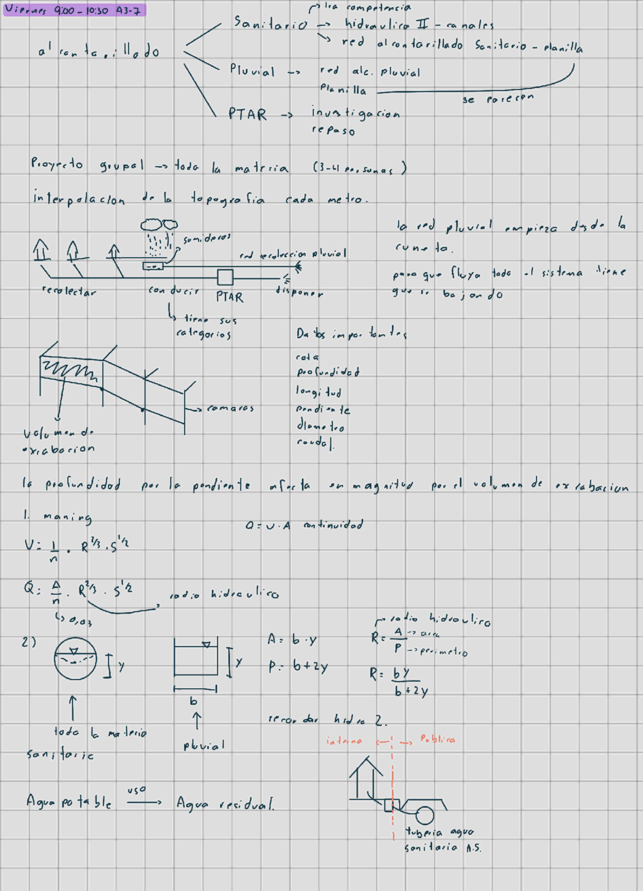 Viernes 9:00 - 10:30 A3-7
1ra competencia
Sanitario → hidraulica II - canales
→ red alcantarillado Sanitario - planilla
alcantarillado
Pluvial → red alc. pluvial
Planilla
se parecen
PTAR → investigacion
repaso
Proyecto grupal → toda la materia (3-4 personas)
interpolacion de la topografia cada metro.
sumideros
red recoleccion pluvial
la red pluvial empieza desde la
cuneta.
para que fluya todo el sistema tiene
que ir bajando
recolectar conducir PTAR disponer
tiene sus
categorias
Datos importantes
cota
profundidad
longitud
pendiente
diametro
caudal.
camaras
volumen de
excabacion
la profundidad por la pendiente afecta en magnitud por el volumen de excabacion
1. maning
Q = V · A continuidad
V = 1/n · R^2/3 · S^1/2
Q = A/n · R^2/3 · S^1/2
radio hidraulico
↳ 0,03
2)
y
y
b
A = b · y
P = b + 2y
radio hidraulico
R = A/P → area
→ perimetro
R = by/b+2y
toda la materia
sanitaria
pluvial
recordar hidro 2.
interna ← → Publica
Agua potable uso → Agua residual.
tuberia agua
sanitaria A.S.